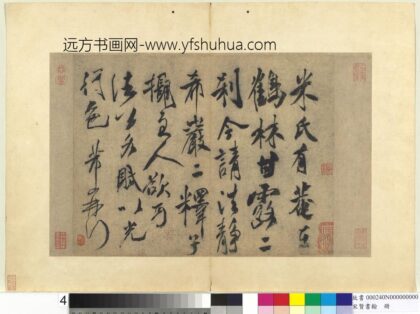 远方书画网-www.yfshuhua.com
米氏有菴在
鶴林甘露二
刹今請法靜
希巖二釋子
主人
法各賦以光
行色 芾再
4
故書 000240N000000000
宋賢書翰 冊